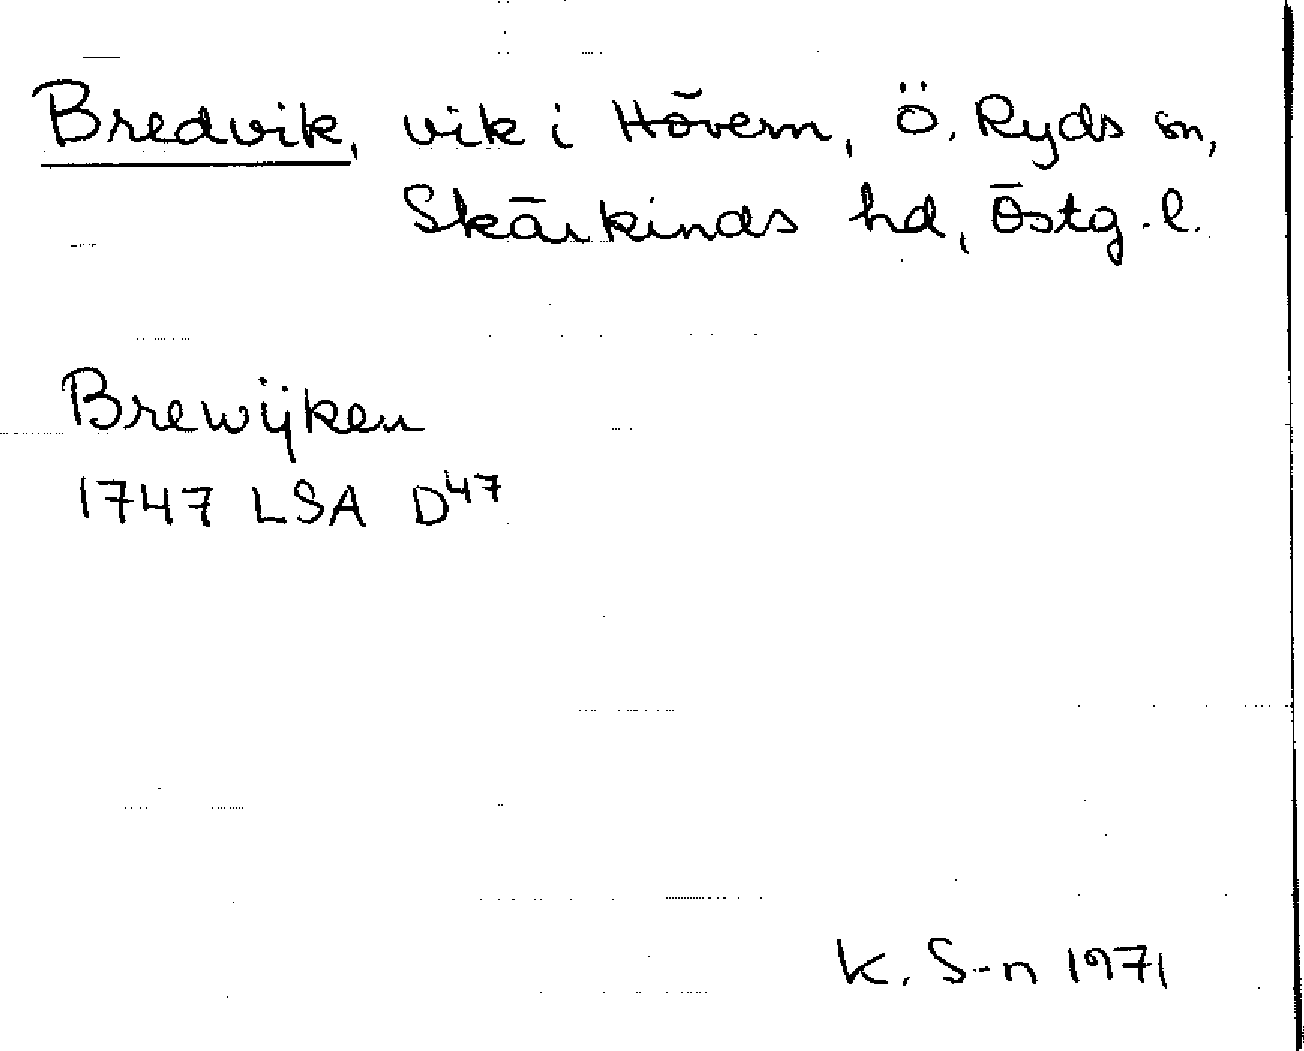 Bredvik, vik i Hövern, Ö. Ryds sn,
Skärkinds hd, Östg. l.
Brewijken
1747 LSA D47
K. S-n 1971